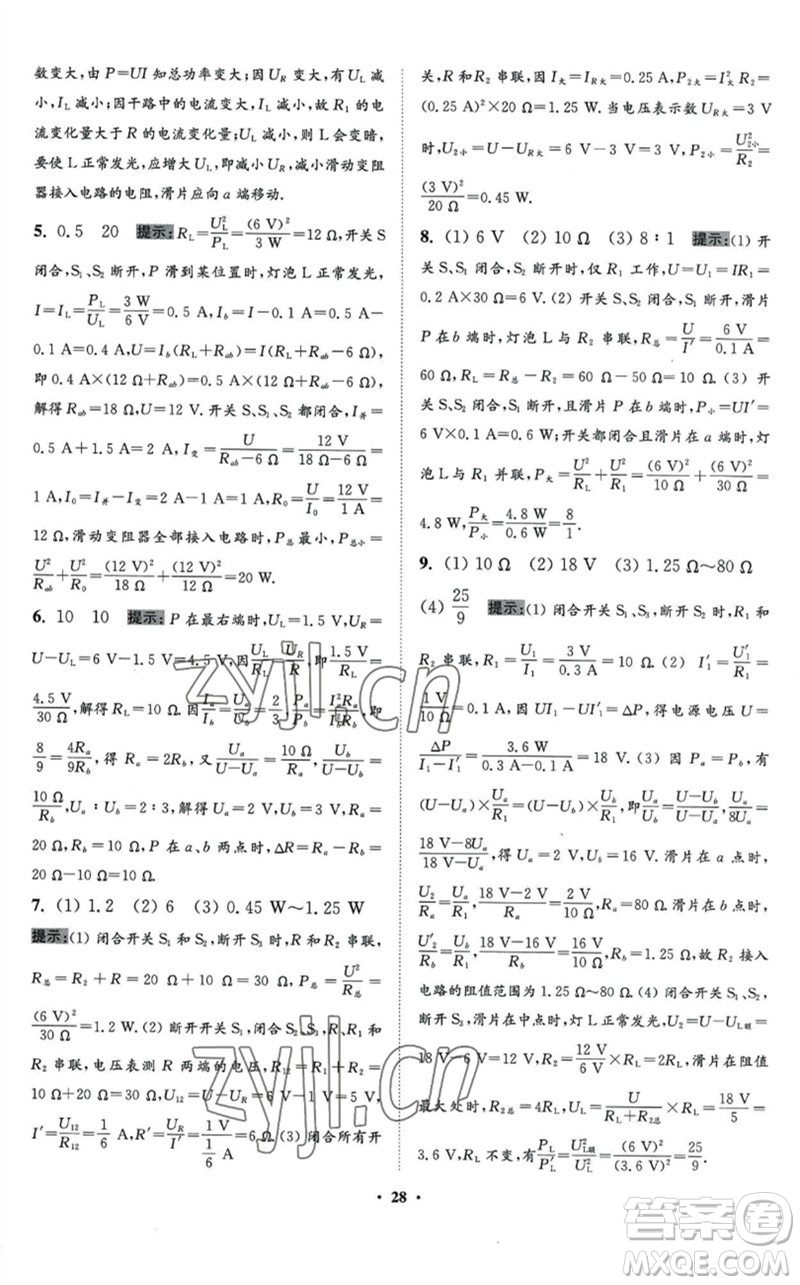 数变大，由 P=UI 知总功率变大；因 U_R 变大，有 U_L 减
小，I_L 减小；因干路中的电流变大，I_L 减小，故 R₁ 的电
流变化量大于 R 的电流变化量；U_L 减小，则 L 会变暗，
要使 L 正常发光，应增大 U_L，即减小 U_R，减小滑动变阻
器接入电路的电阻，滑片应向 a 端移动.
5. 0.5 20 提示：R_L=U_L²/P_L=(6 V)²/3 W=12 Ω，开关 S
闭合，S₁、S₂ 断开，P 滑到某位置时，灯泡 L 正常发光，
I=I_L=P_L/U_L=3 W/6 V=0.5 A，I_b=I-0.1 A=0.5 A-
0.1 A=0.4 A，U=I(R_L+R_ab)=I_b(R_L+R_ab-6 Ω)，
即 0.4 A×(12 Ω+R_ab)=0.5 A×(12 Ω+R_ab-6 Ω)，
解得 R_ab=18 Ω，U=12 V. 开关 S、S₁、S₂ 都闭合，I_并=
0.5 A+1.5 A=2 A，I_变=U/(R_ab-6 Ω)=12 V/(18 Ω-6 Ω)=
1 A，I₀=I_并-I_变=2 A-1 A=1 A，R₀=U/I₀=12 V/1 A=
12 Ω，滑动变阻器全部接入电路时，P_总最小=
U²/R_ab+U²/R₀=(12 V)²/18 Ω+(12 V)²/12 Ω=20 W.
6. 10 10 提示：P 在最右端时，U_L=1.5 V，U_R=
U-U_L=6 V-1.5 V=4.5 V，因U_L/R_L=U_R/R，即1.5 V/R_L=
4.5 V/30 Ω，解得 R_L=10 Ω. 因I_a/I_b=U_a/U_b=2/3，P_a/P_b=I_a²R_a/I_b²R_b，即
8/9=4R_a/9R_b，得 R_a=2R_b，又U_a/(U-U_a)=10 Ω/R_a，U_b/(U-U_b)=
10 Ω/R_b，U_a∶U_b=2∶3，解得 U_a=2 V，U_b=3 V，R_a=
20 Ω，R_b=10 Ω，P 在 a、b 两点时，ΔR=R_a-R_b=
20 Ω-10 Ω=10 Ω.
7. (1) 1.2 (2) 6 (3) 0.45 W～1.25 W
提示：(1) 闭合开关 S₁ 和 S₂，断开 S₃ 时，R 和 R₂ 串联，
R_总=R₂+R=20 Ω+10 Ω=30 Ω，P_总=U²/R_总=
(6 V)²/30 Ω=1.2 W. (2) 断开开关 S₁，闭合 S₂、S₃，R、R₁ 和
R₂ 串联，电压表测 R 两端的电压，R₁₂=R₁+R₂=
10 Ω+20 Ω=30 Ω，U₁₂=U-U_R=6 V-1 V=5 V，
I′=U₁₂/R₁₂=1/6 A，R′=U_R/I′=1 V/(1/6 A)=6 Ω. (3) 闭合所有开
关，R 和 R₂ 串联，因 I_大=I_R大=0.25 A，P₂大=I_大²R₂=
(0.25 A)²×20 Ω=1.25 W. 当电压表示数 U_R大=3 V
时，U₂小=U-U_R大=6 V-3 V=3 V，P₂小=U₂小²/R₂=
(3 V)²/20 Ω=0.45 W.
8. (1) 6 V (2) 10 Ω (3) 8∶1 提示：(1) 开
关 S 闭合，S₁、S₂ 断开时，仅 R₁ 工作，U=U₁=IR₁=
0.2 A×30 Ω=6 V. (2) 开关 S、S₁ 闭合，S₂ 断开，滑片
P 在 b 端时，灯泡 L 与 R₂ 串联，R_总=U/I′=6 V/0.1 A=
60 Ω，R_L=R_总-R₂=60 Ω-50 Ω=10 Ω. (3) 当开关
S、S₁ 闭合，S₂ 断开，且滑片 P 在 b 端时，P_小=UI′=
6 V×0.1 A=0.6 W；开关都闭合且滑片在 a 端时，灯
泡 L 与 R₁ 并联，P_大=U²/R_L+U²/R₁=(6 V)²/10 Ω+(6 V)²/30 Ω=
4.8 W，P_大/P_小=4.8 W/0.6 W=8/1.
9. (1) 10 Ω (2) 18 V (3) 1.25 Ω～80 Ω
(4) 25/9 提示：(1) 闭合开关 S₁、S₃，断开 S₂ 时，R₁ 和
R₂ 串联，R₁=U₁/I₁=3 V/0.3 A=10 Ω. (2) I₁′=U₁′/R₁=
1 V/10 Ω=0.1 A，因 UI₁-UI₁′=ΔP，得电源电压 U=
ΔP/(I₁-I₁′)=3.6 W/(0.3 A-0.1 A)=18 V. (3) 因 P_a=P_b，有
(U-U_a)×U_a/R₁=(U-U_b)×U_b/R₁，即U_a/U_b=(U-U_b)/(U-U_a)，U_a/8U_a=
(18 V-8U_a)/(18 V-U_a)，得 U_a=2 V，U_b=16 V. 滑片在 a 点时，
U_a/R_a=U_a/R₁，(18 V-2 V)/R_a=2 V/10 Ω，R_a=80 Ω. 滑片在 b 点时，
U₂′/R_b=U_b/R₁，(18 V-16 V)/R_b=16 V/10 Ω，R_b=1.25 Ω. 故 R₂ 接入
电路的阻值范围为 1.25 Ω～80 Ω. (4) 闭合开关 S₁、S₂，
断开 S₃，滑片在中点时，灯 L 正常发光，U₂=U-U_L额=
18 V-6 V=12 V，R₂=12 V/(6 V/R_L)=2R_L，滑片在阻值
最大处时，R₂总=4R_L，U_L=U/(R_L+R₂总)×R_L=18 V/5=
3.6 V，R_L 不变，有P_L/P_L′=U_L额²/U_L²=(6 V)²/(3.6 V)²=25/9.
zyjl.cn
zyjl.cn
• 28 •
答案卷
MXQE.COM